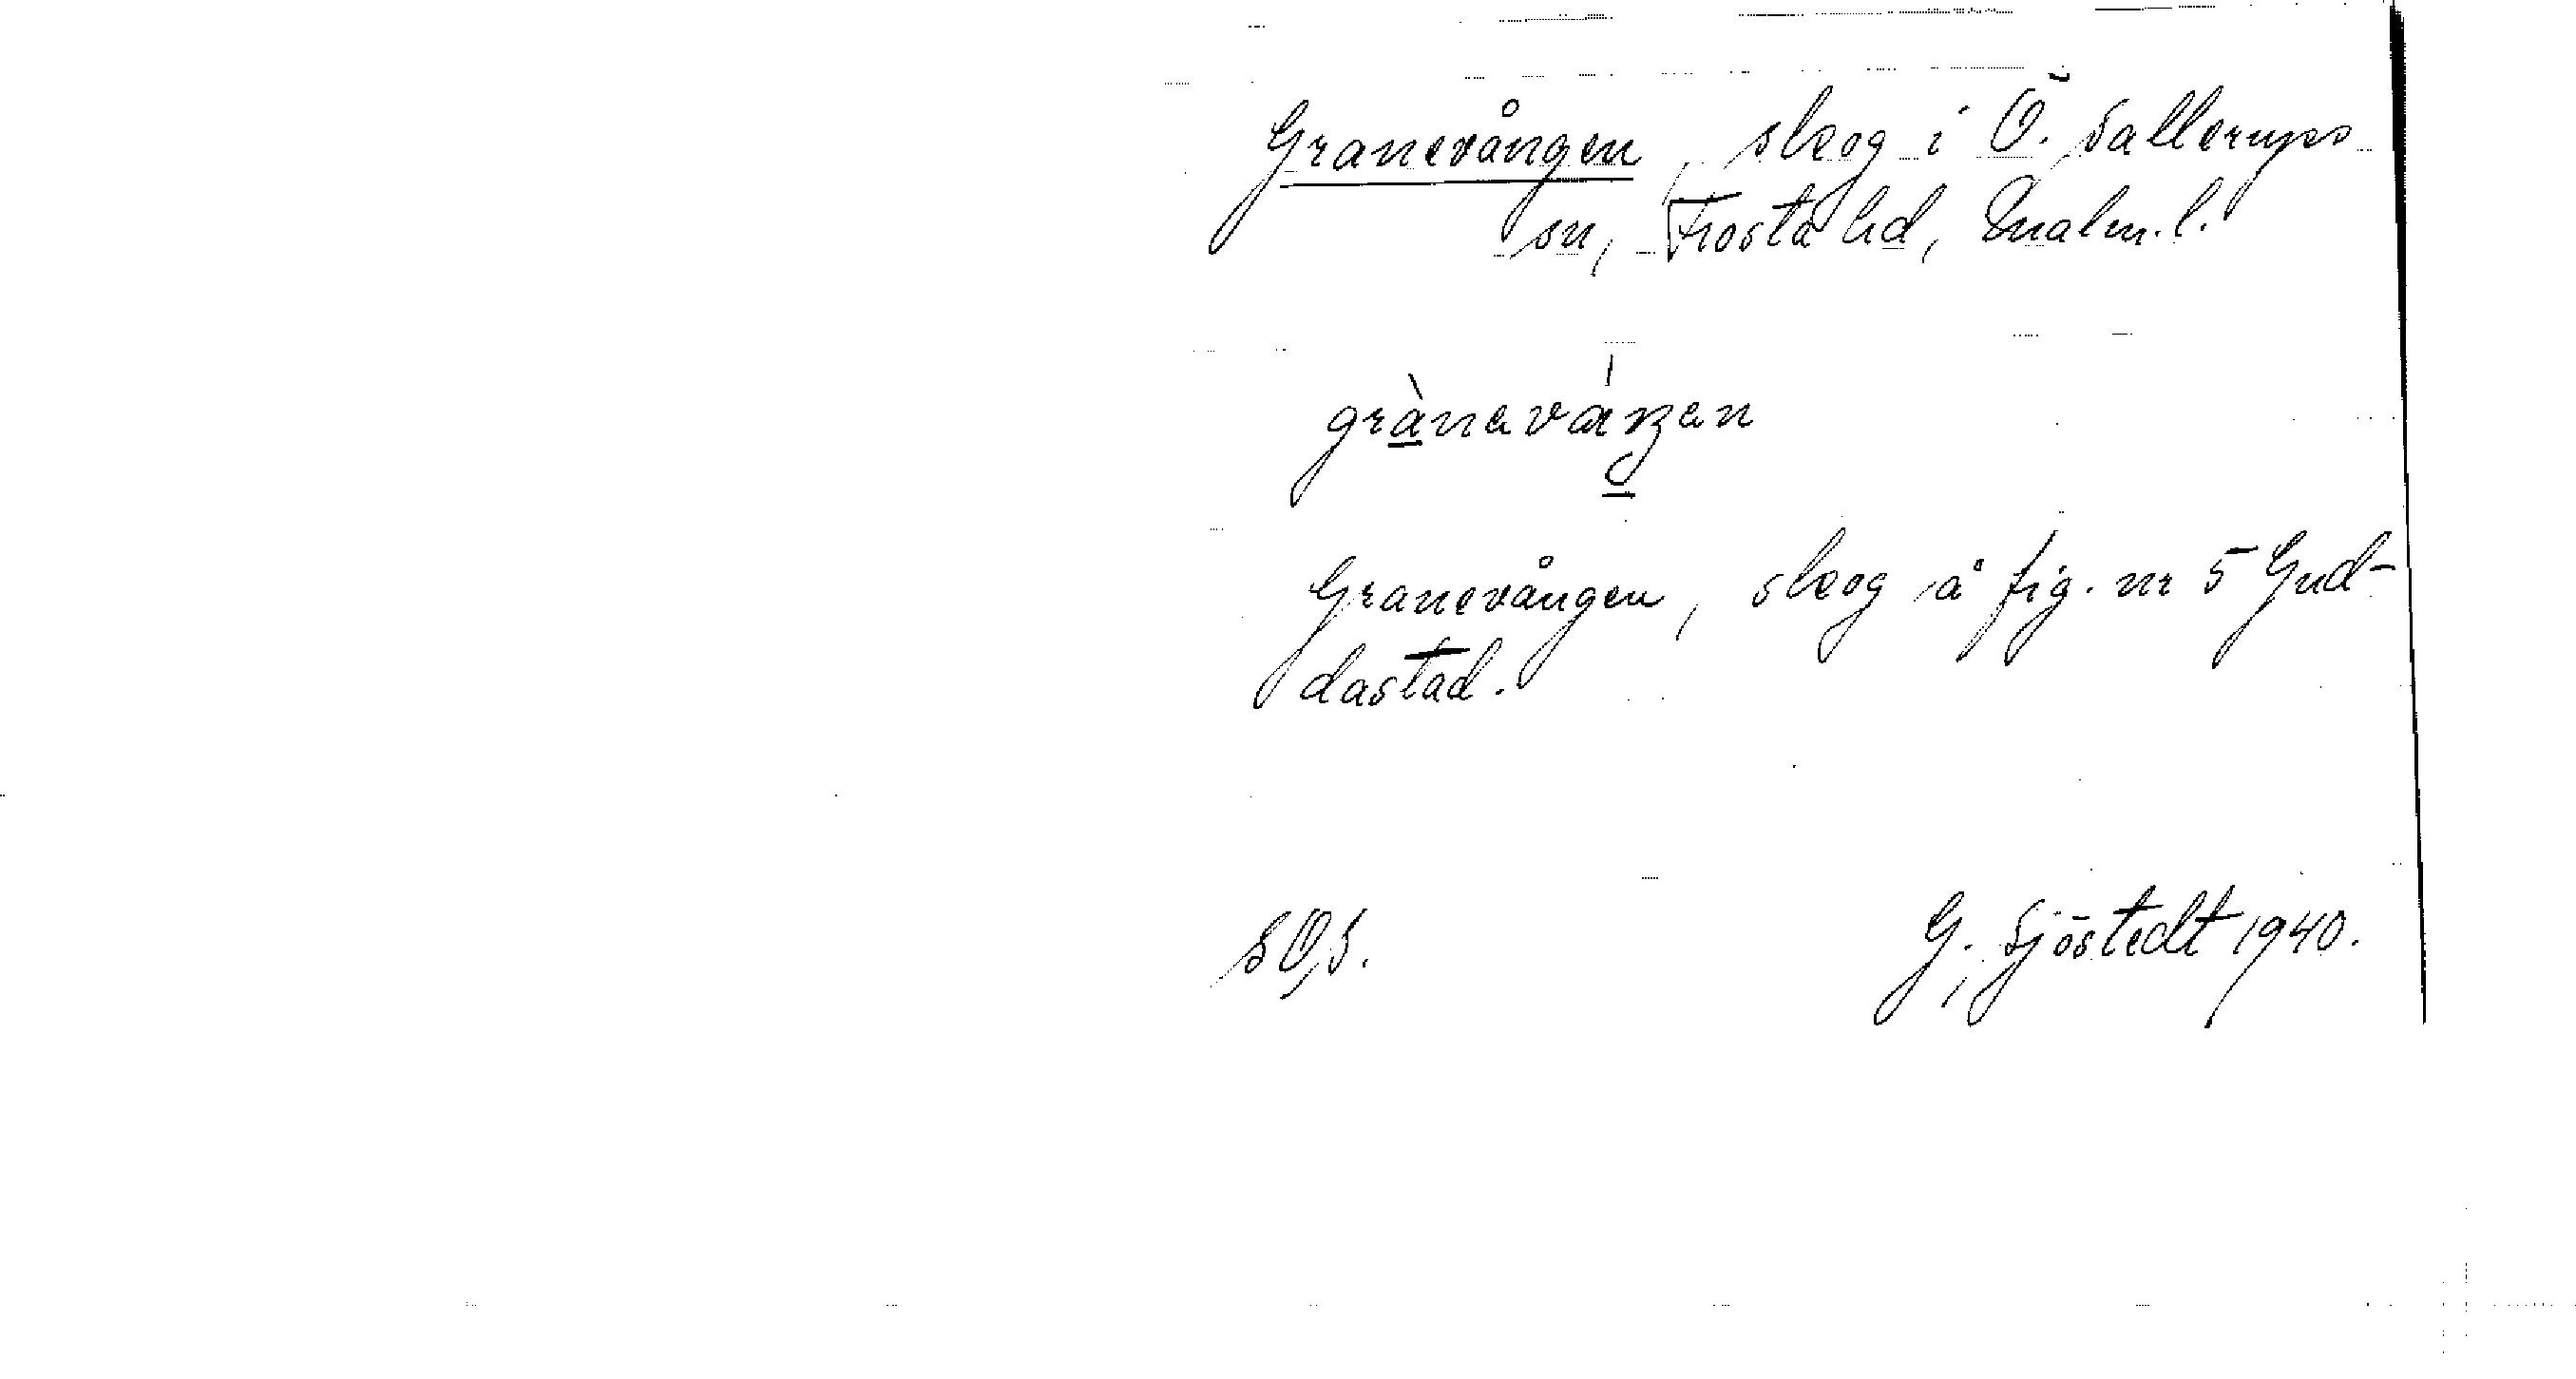 Granevången, skog i Ö. Sallerups
sn, Frosta hd, Malm. l.
grànaváŋen
Granevången, skog å fig. nr 5 Gud-
dastad.
S O, S.
G. Sjöstedt 1940.